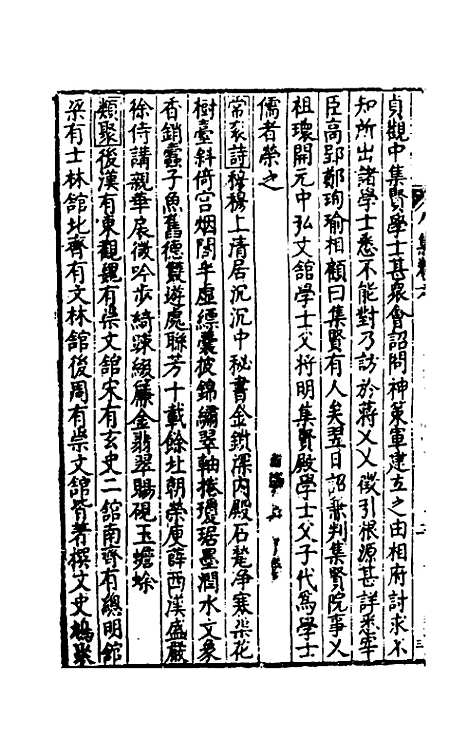 貞觀中集賢學士甚衆會詔問神策軍建立之由相府討求不
知所出諸學士悉不能對乃訪於蔣乂乂徵引根源甚詳悉宰
臣高郢鄭珣瑜相顧曰集賢有人矣翌日詔兼判集賢院事乂
祖瓌開元中弘文館學士父將明集賢殿學士父子代爲學士
儒者榮之
常袞詩穆穆上清居沉沉中秘書金鋪深內殿石甃净寒渠花
樹臺斜倚宫烟閣半虚縹囊披錦繡翠軸捲瓊琚墨潤水文象
香銷蠹子魚舊德雙遊處聯芳十載餘北朝榮庾薛西漢盛嚴
徐侍講親華扆徵吟步綺疎綴簾金翡翠賜硯玉蟾蜍
類聚後漢有東觀魏有崇文館宋有玄史二館南齊有總明館
梁有士林館北齊有文林館後周有崇文館皆著撰文史鳩聚